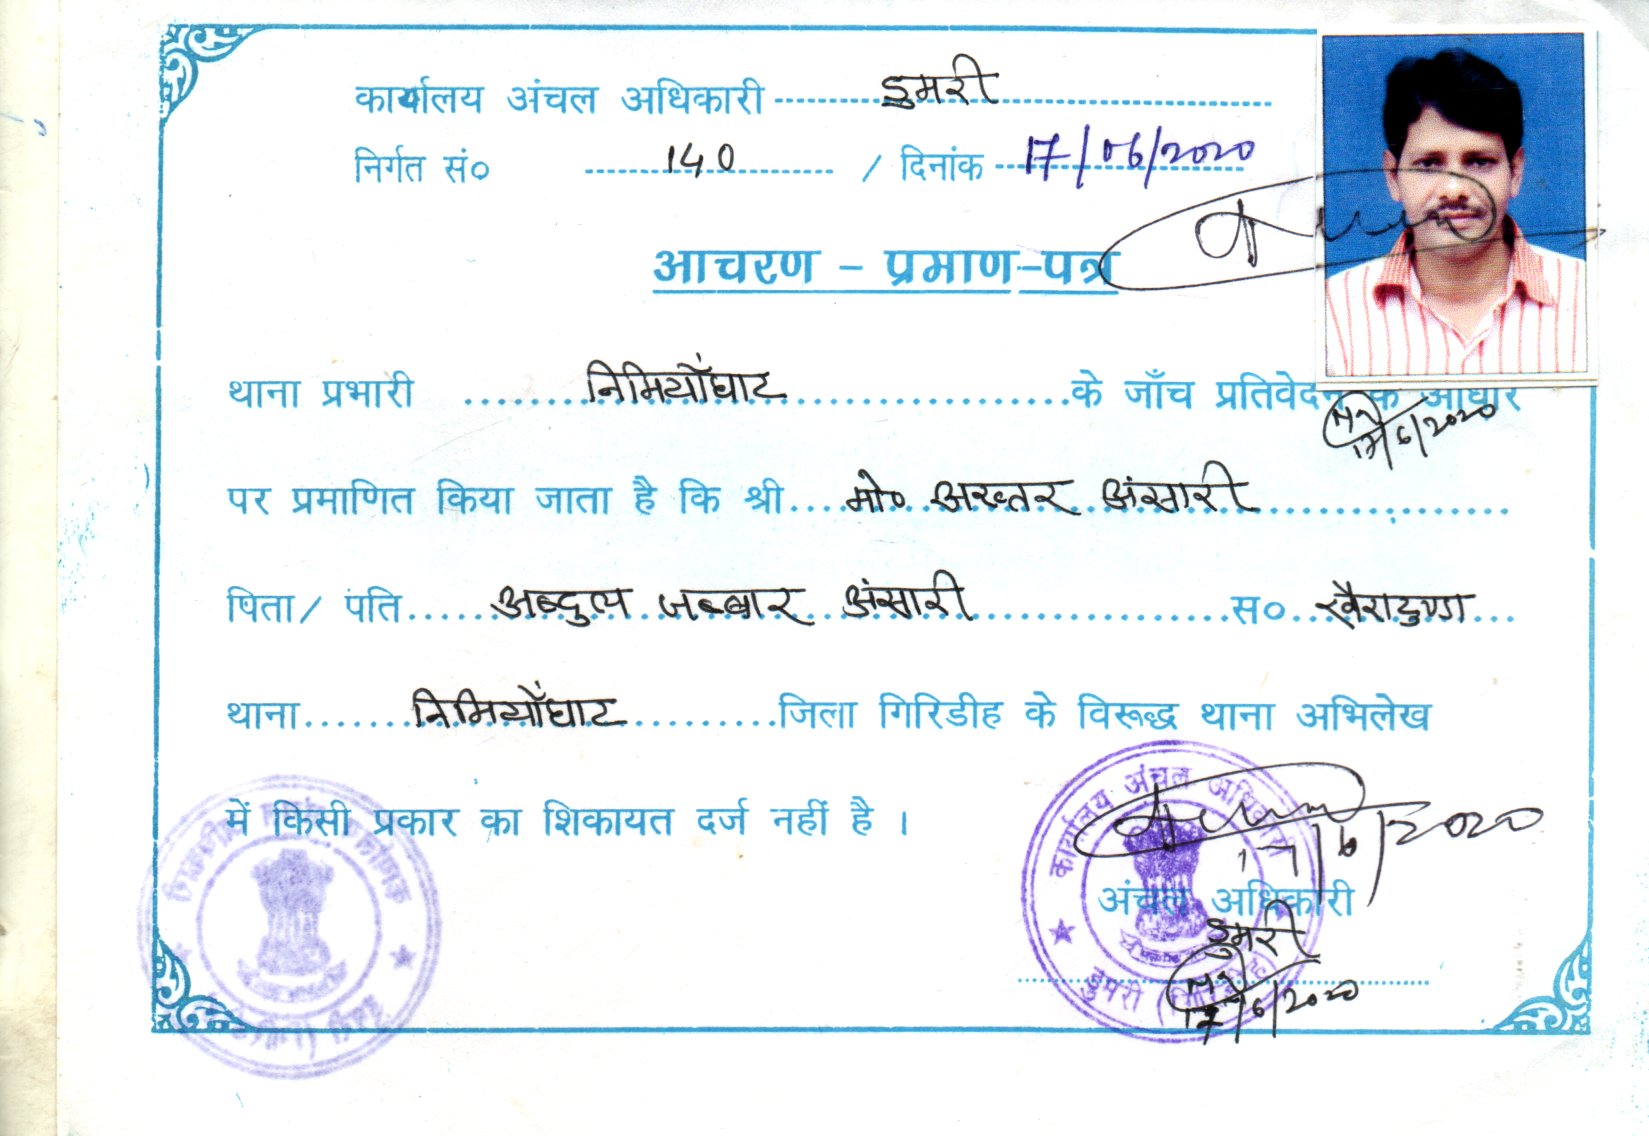 कार्यालय अंचल अधिकारी डुमरी
निर्गत सं० 140 / दिनांक 17/06/2020
आचरण - प्रमाण-पत्र
थाना प्रभारी निमियाँघाट के जाँच प्रतिवेदन के आधार
17/6/2020
पर प्रमाणित किया जाता है कि श्री मो० अख्तर अंसारी
पिता/ पति अब्दुल जब्बार अंसारी स० खैराटुण्डा
थाना निमियाँघाट जिला गिरिडीह के विरूद्ध थाना अभिलेख
में किसी प्रकार का शिकायत दर्ज नहीं है ।
कार्यालय अंचल अधिकारी
17/6/2020
अंचल अधिकारी
डुमरी
डुमरी
17/6/2020